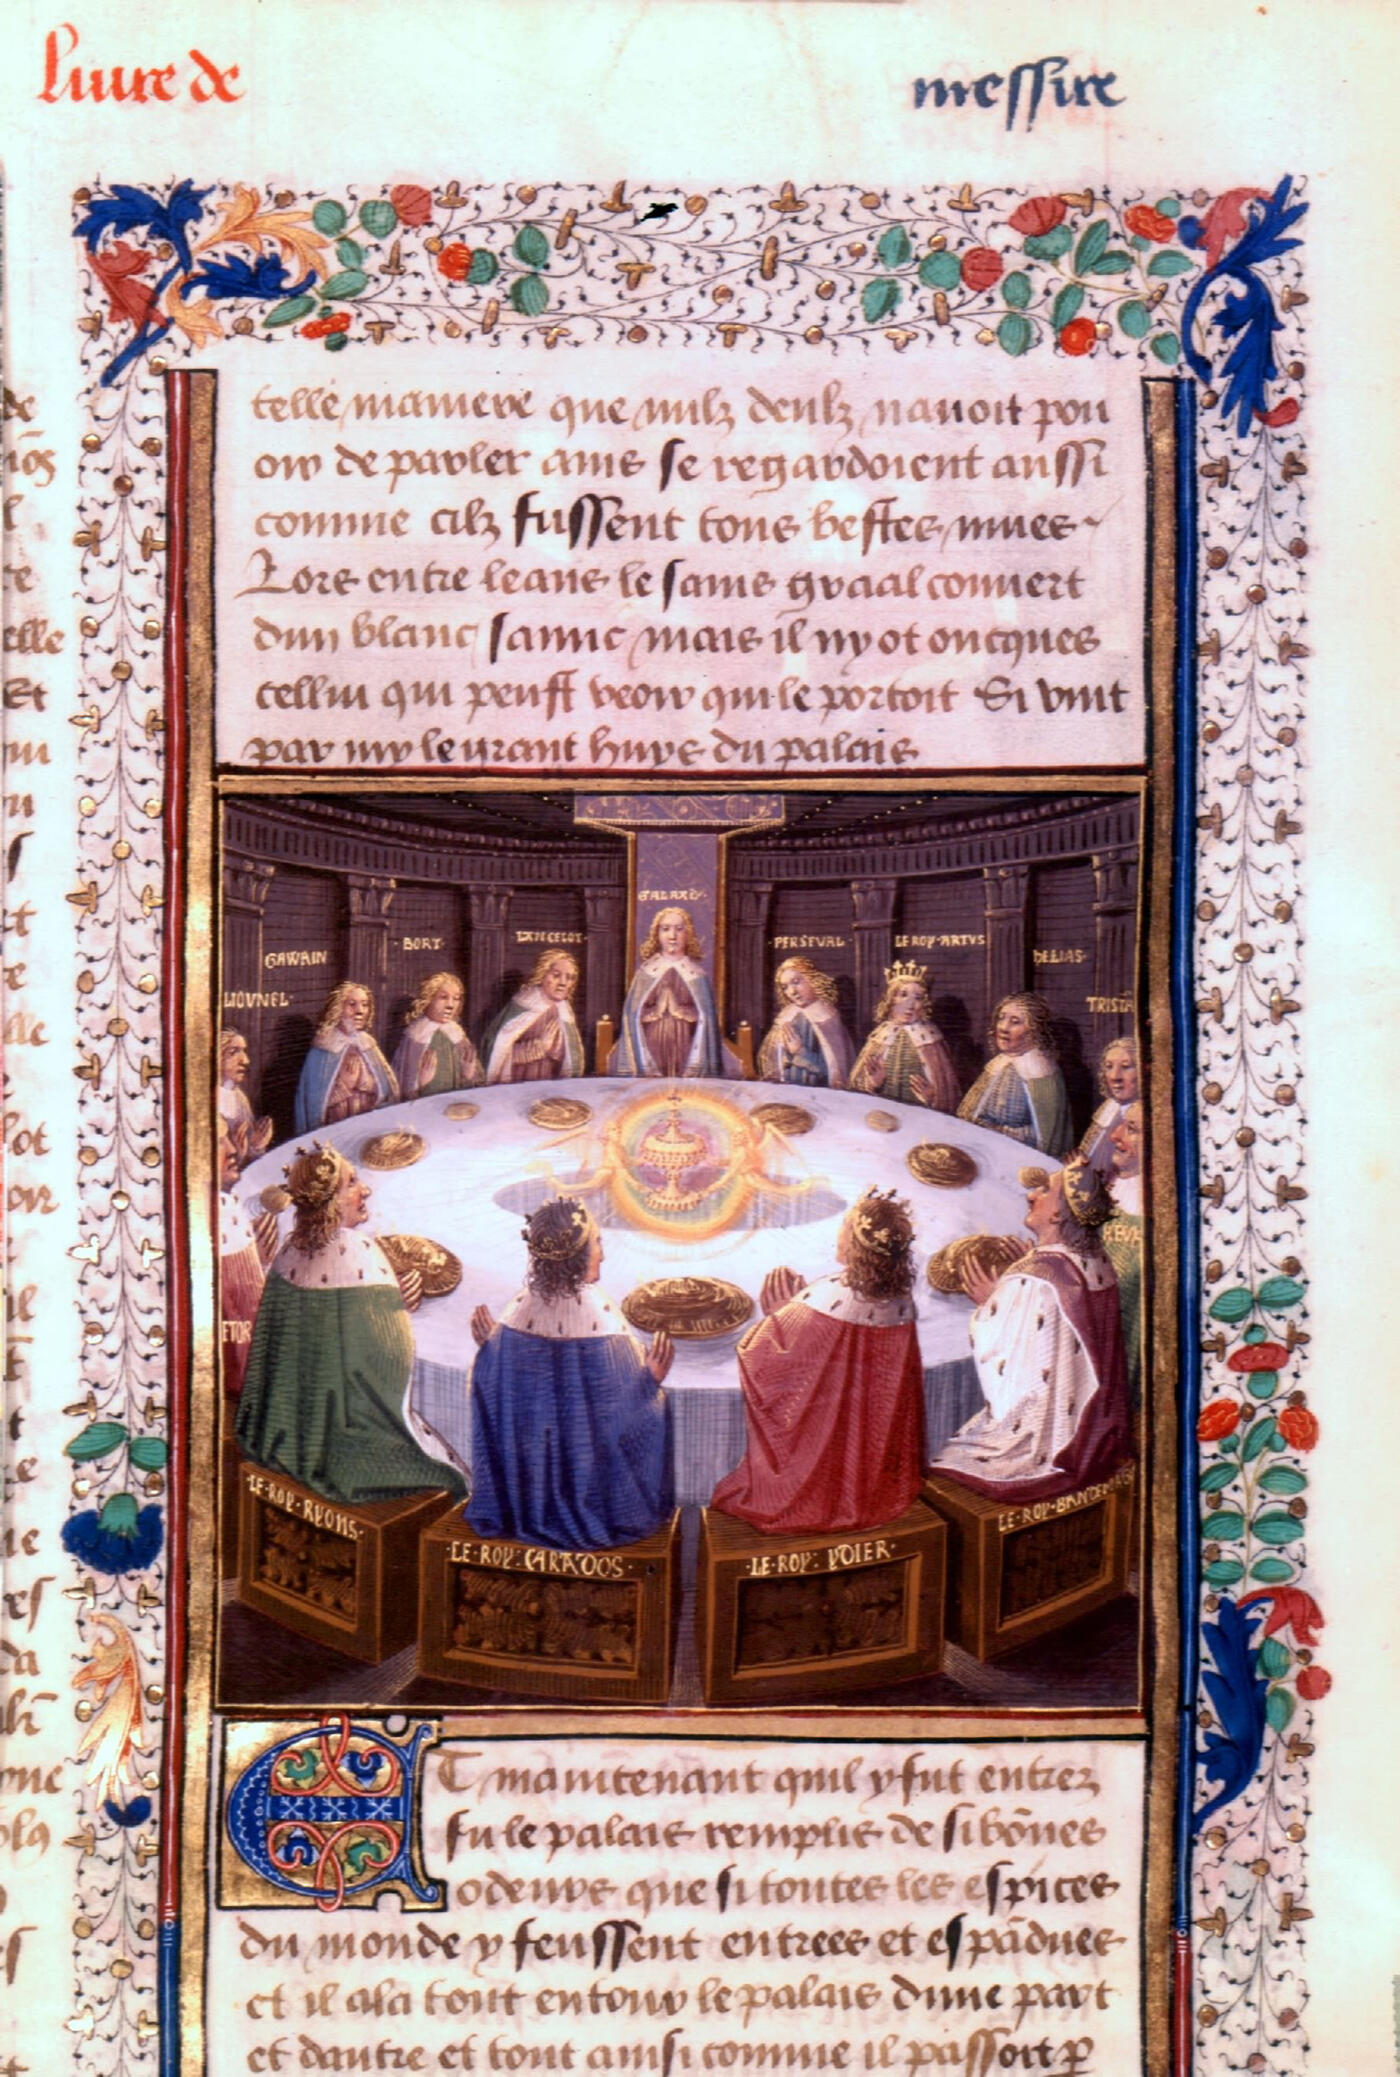 livre de
messire
telle maniere que nulz deulz nauoit pou
oir de parler ains se regardoient aussi
comme cilz fussent tous bestes mues
Lors entre leans le sains graal couuert
dun blanc samic mais il ny ot oncques
cellui qui peust veoir qui le portoit Si vint
par my le grant huys du palais
GALAAD
LANCELOT
PERSEVAL
BORT
LE ROY ARTVS
GAWAIN
HELIAS
LIOVNEL
TRISTA
ETOR
LE ROY RYONS
LE ROY CARADOS
LE ROY YDIER
LE ROY BANDEMAGV
ET maintenant quil y fut entrez
fu le palais remplis de si bōnes
odeurs que si toutes les espices
du monde y feussent entrees et espādues
et il ala tout entour le palais dune part
et dautre et tout ainsi comme il passoit p̄